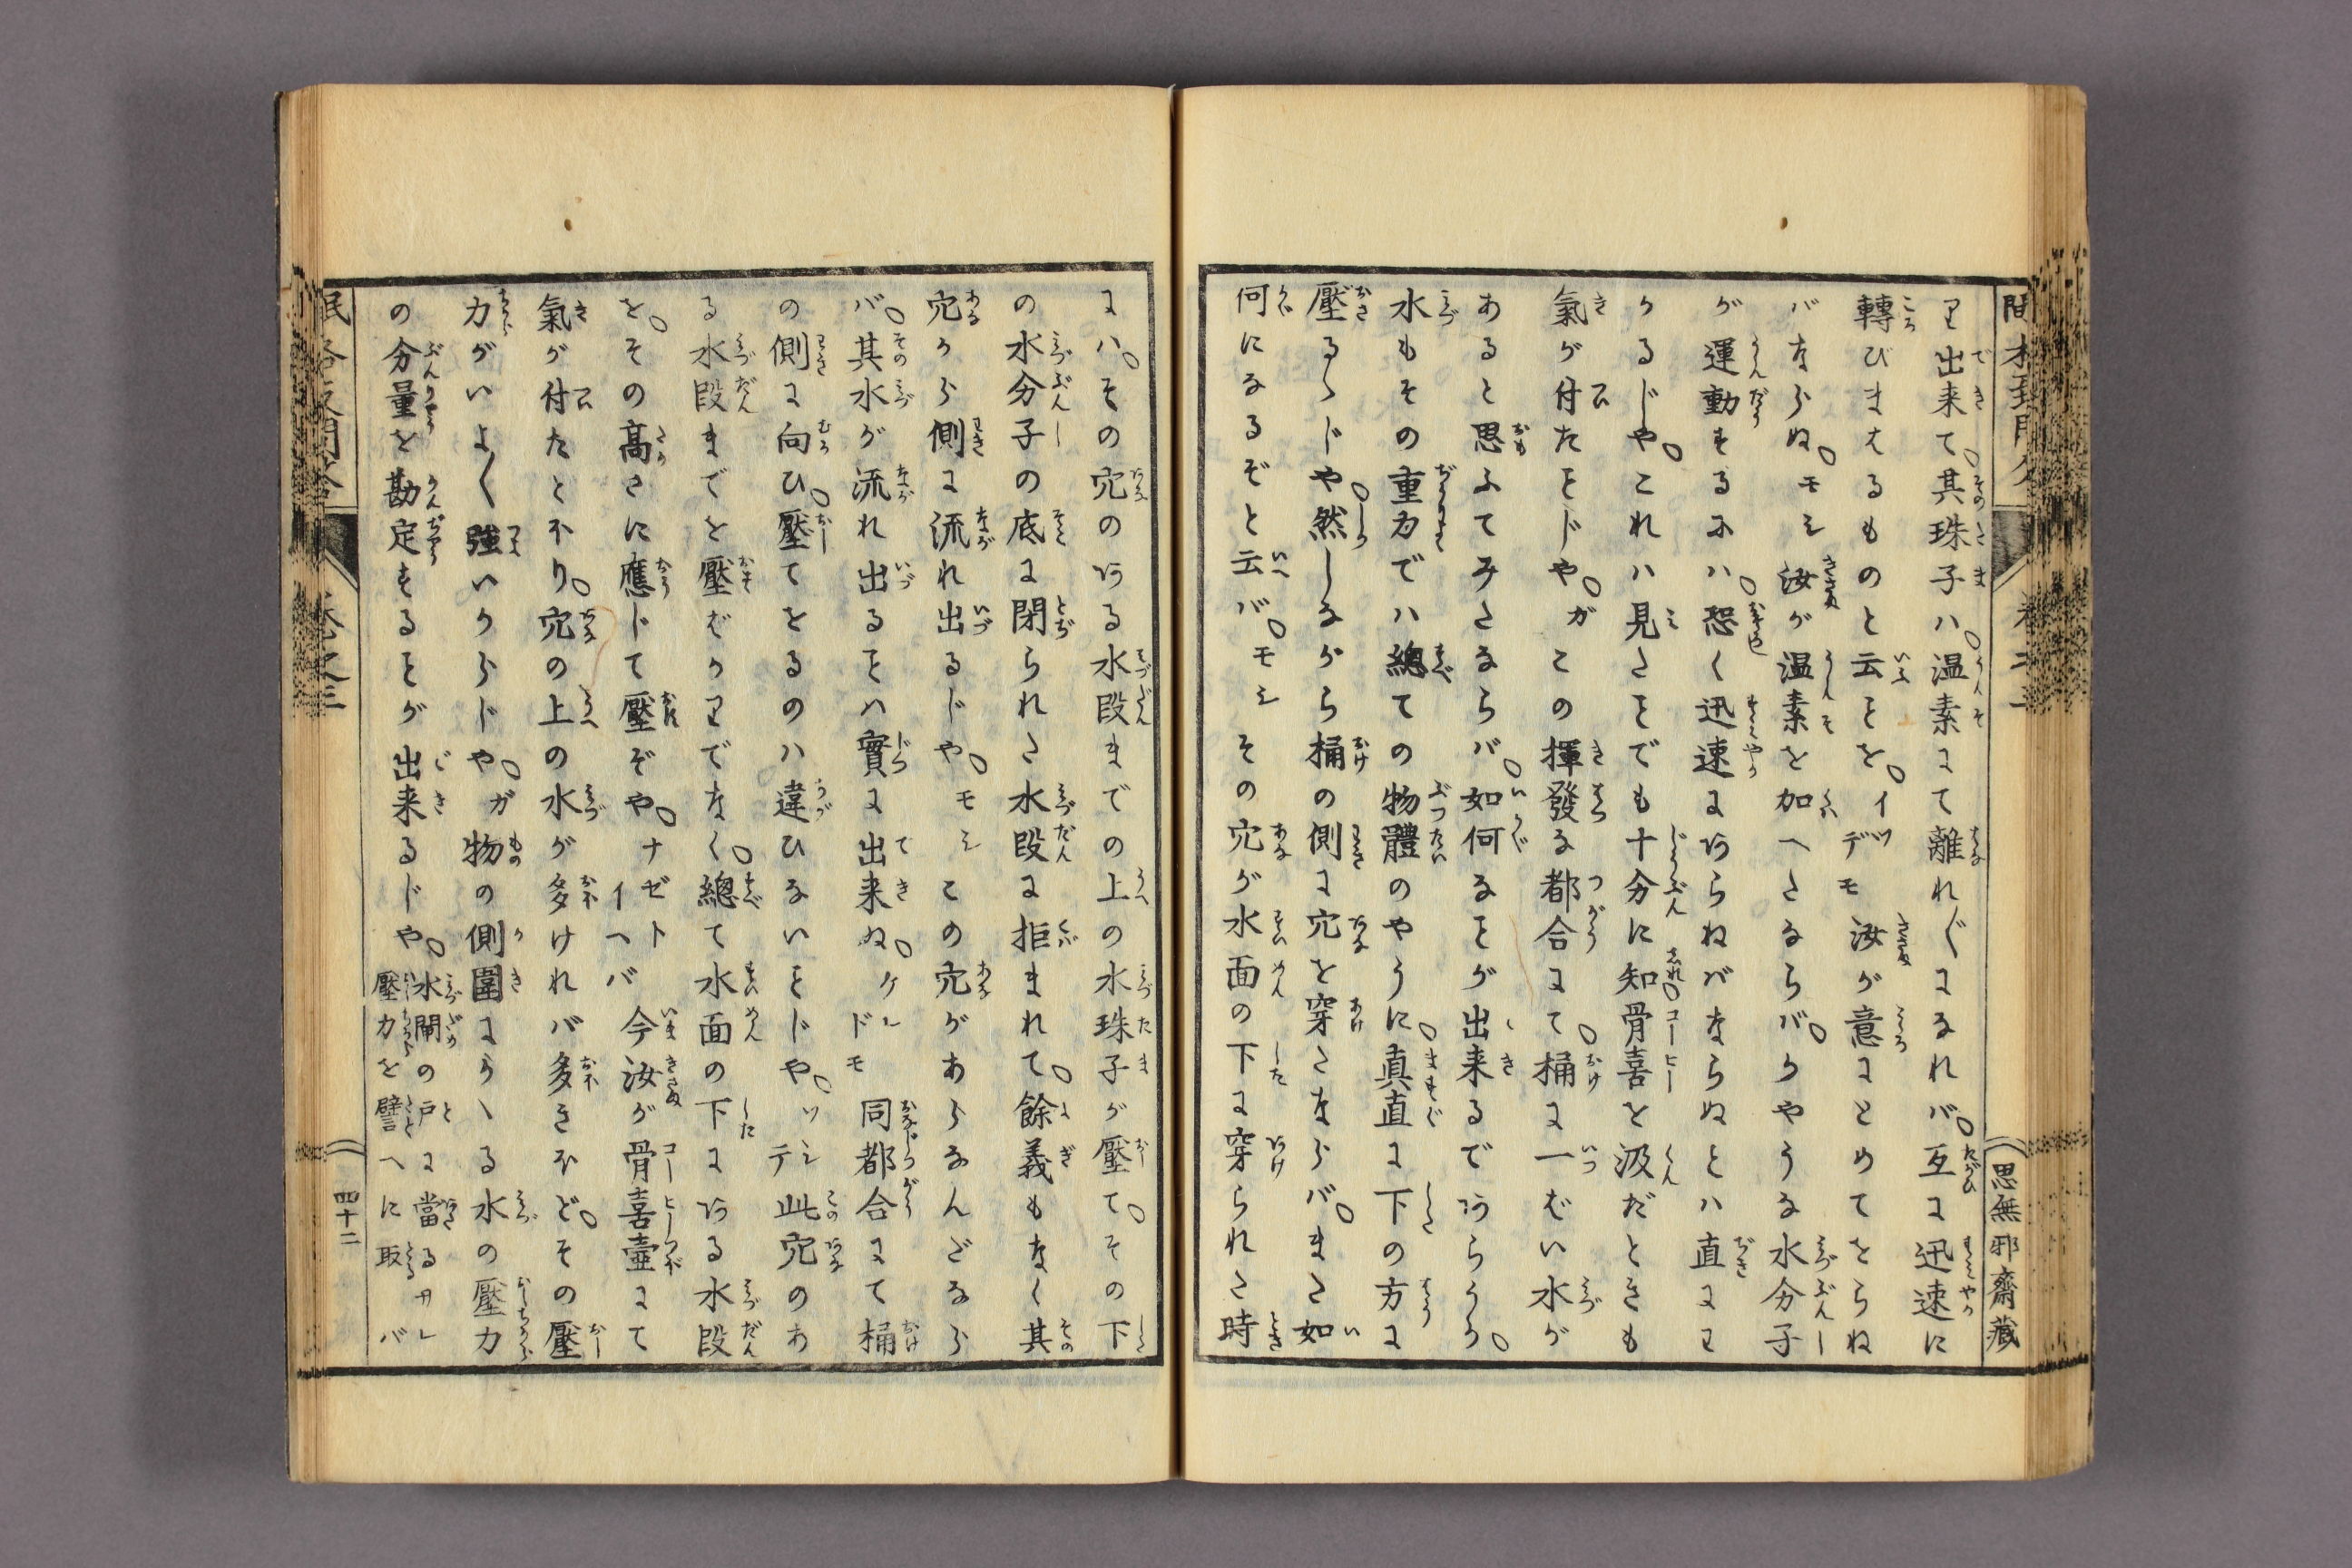 り出来て其珠子ハ温素にて離れ〴〵になれバ互に迅速に
轉びまはるものと云ことをイツデモ汝が意にとめてをらね
バならぬモシ汝が温素を加へたるならバかやうな水分子
が運動するにハ恐く迅速にあらねバならぬとハ直にわ
かるじやこれハ見たことでも十分に知骨喜を汲だときも
氣が付たことじやガこの揮發る都合にて桶に一ぱい水が
あると思ふてみたならバ如何なことが出来るであらうか
水もその重力でハ總ての物體のやうに真直に下の方に
壓るゝじや然しながら桶の側に穴を穿たならバまた如
何になるぞと云バモシその穴が水面の下に穿られた時
思無邪齋藏
にハその穴のある水段までの上の水珠子が壓てその下
の水分子の底に閉られた水段に拒まれて餘義もなく其
穴から側に流れ出るじやモシこの穴があらなんだなら
バ其水が流れ出ることハ實に出来ぬケレドモ同都合にて桶
の側に向ひ壓てをるのハ違ひないことじやソシテ此穴のあ
る水段までを壓ばかりでなく總て水面の下にある水段
をその高さに應じて壓ぞやナゼトイヘバ今汝が骨喜壷にて
氣が付たとおり穴の上の水が多ければ多きほどその壓
力がいよ〱強いからじやガ物の側圍にかゝる水の壓力
の分量を勘定することが出来るじや水閘の戸に當るカレ
壓力を譬へに取バ
四十二